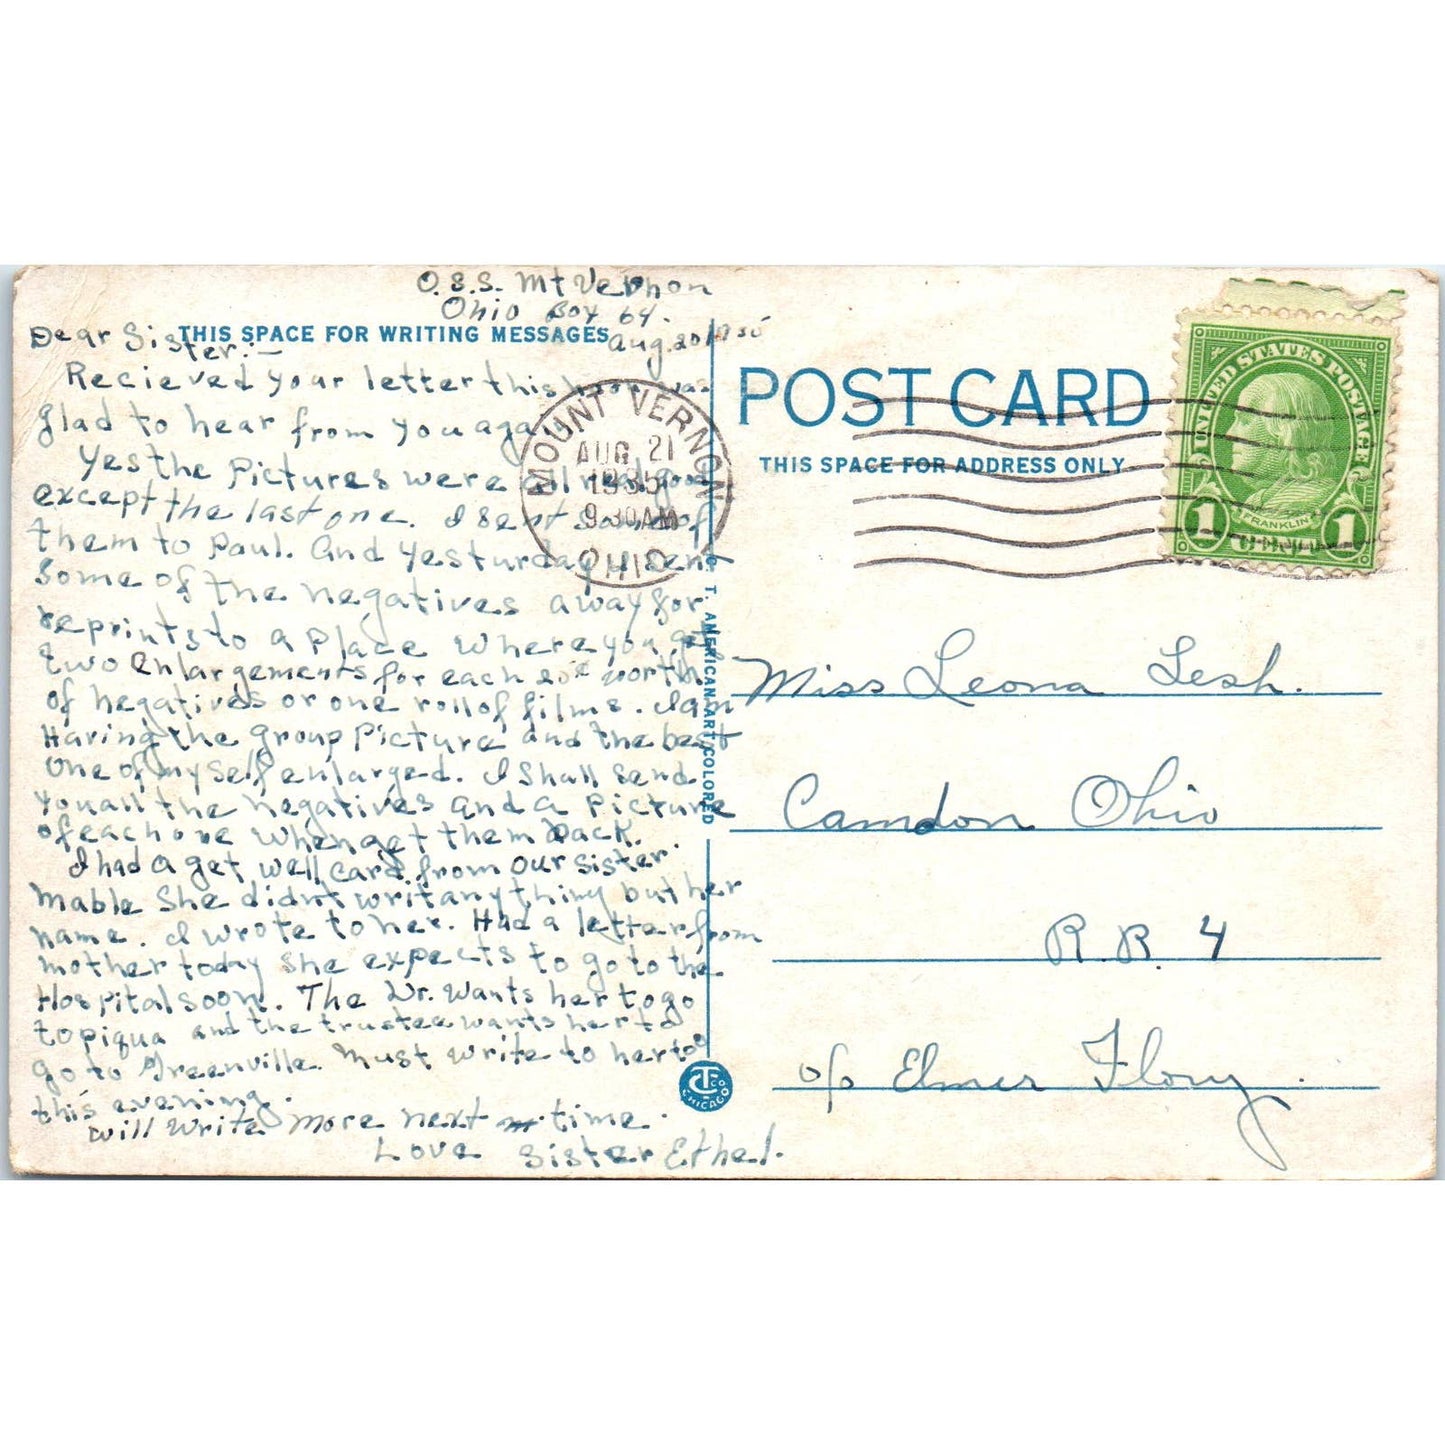 O.S.S. Mt Vernon
Ohio Box 64.
Aug. 20 1935
Dear Sister:-
THIS SPACE FOR WRITING MESSAGES
Recieved your letter this was
glad to hear from you again
Yes the Pictures were all real good
except the last one. I sent some of
them to Paul. And Yesturday I sent
some of the negatives away for
reprints to a Place where you get
two enlargements for each worth
of negatives or one roll of films. I am
Having the group Picture and the best
one of my self enlarged. I shall send
you all the negatives and a Picture
of each one when get them back.
I had a get well card from our sister.
Mable She didnt writ any thing but her
name. I wrote to her. Had a letter from
mother today she expects to go to the
Hospital soon. The Dr. wants her to go
to piqua and the trustee wants her to
go to Greenville. Must write to her too
this evening.
will write more next time.
Love Sister Ethel.
MOUNT VERNON
AUG 21
1935
9 30 AM
OHIO
C. T. AMERICAN ART COLORED
CT CO
CHICAGO
POST CARD
THIS SPACE FOR ADDRESS ONLY
UNITED STATES POSTAGE
FRANKLIN
1 CENT 1
Miss Leona Lesh.
Camdon Ohio
R.R. 4
c/o Elmer Flory.